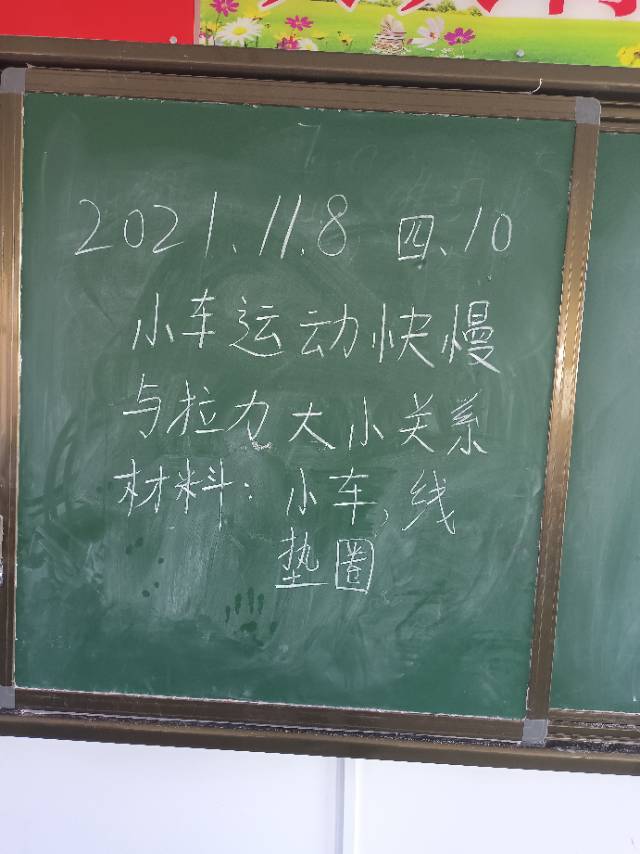 2021.11.8 四、10
小车运动快慢
与拉力大小关系
材料：小车，线
垫圈